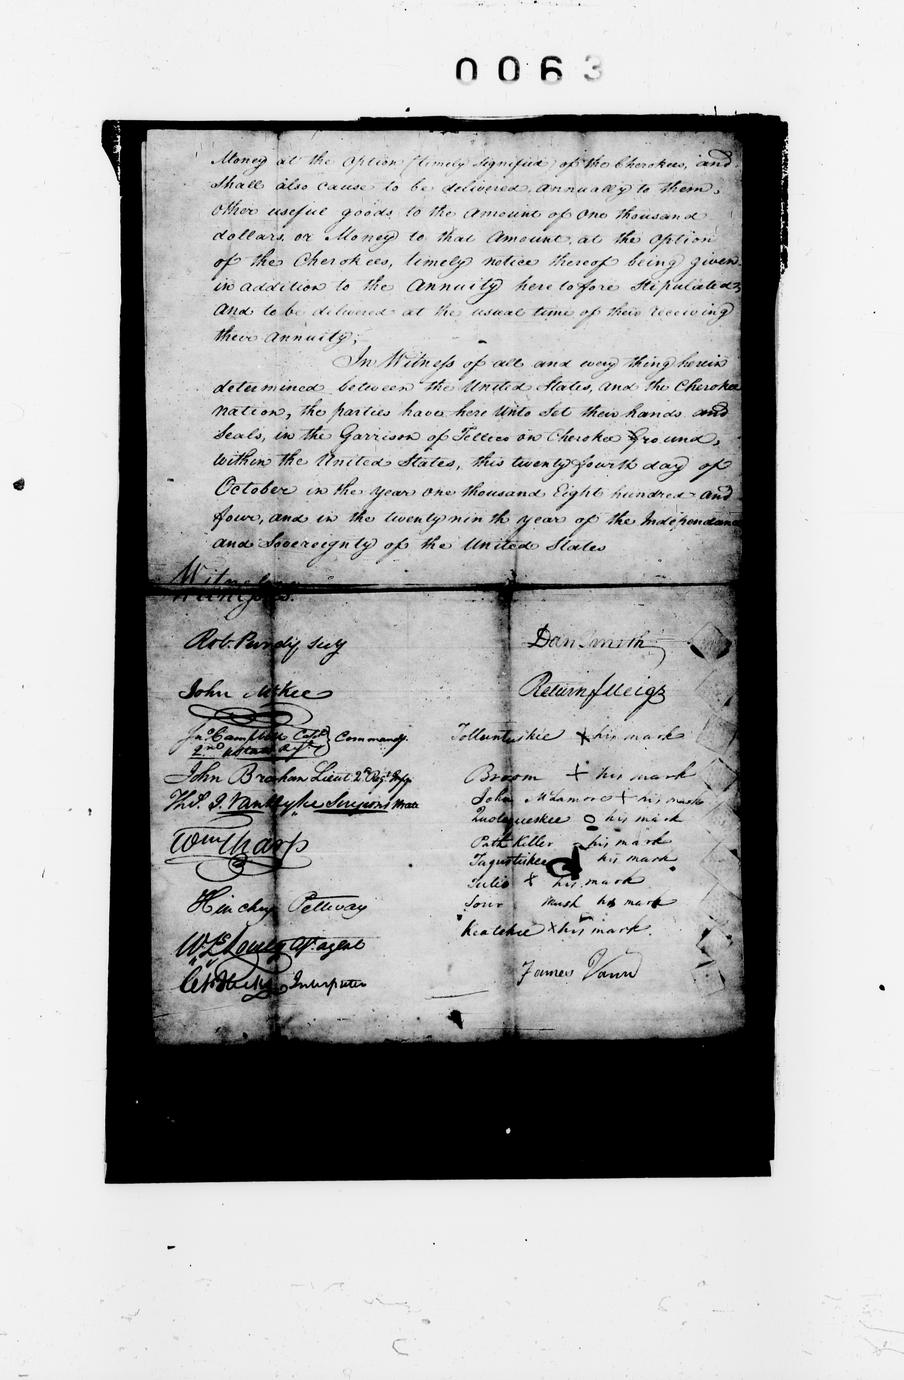 0063
Money at the option (timely signified) of the Cherokees, and
shall also cause to be delivered, annually to them,
other useful goods to the amount of one thousand
dollars, or Money to that Amount, at the option
of the Cherokees, timely notice thereof being given
in addition to the Annuity here to fore Stipulated,
and to be delivered at the usual time of their receiving
their annuity;
In Witness of all and every thing herein
determined between the United States, and the Cherokee
nation, the parties have here unto Set their hands and
Seals, in the Garrison of Tellico on Cherokee Ground,
within the United States, this twenty fourth day of
October in the year one thousand Eight hundred and
four, and in the twenty ninth year of the Independence
and Sovereignty of the United States
Witnesses.
Rob. Purdy Secy
Dan Smith
John McKee
Return J Meigs
Jno Campbell Capt
2nd Commandg.
Tolluntuskie X his mark
John Brahan Lieut. 2d Regt Infy
Broom + his mark
Thos. J. VanDyke Surgeons Mate
John McLamore + his mark
Quotequeskee O his mark
Wm Charp
Path Killer his mark
Tagustiskee his mark
Tulio + his mark
Hinchey Pettway
Sour Mush his mark
Keatchie X his mark.
W. L. Lovely At. agent
James Vann
Interpreter